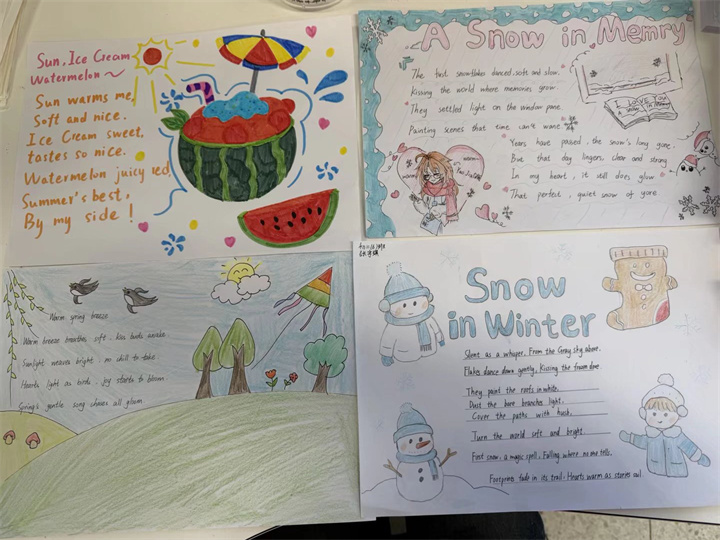 Sun, Ice Cream
Watermelon
Sun warms me,
Soft and nice.
Ice Cream sweet,
tastes so nice.
Watermelon juicy red,
Summer's best,
By my side!
A Snow in Memry
The first snowflakes danced, soft and slow.
Kissing the world where memories grow.
They settled light on the window pane.
Painting scenes that time can't wane.
Years have passed, the snow's long gone.
But that day lingers, clear and strong
In my heart, it still does glow
That perfect, quiet snow of yore
Warm spring breeze
Warm breeze breathes soft. kiss buds awake.
Sunlight weaves bright. no chill to take.
Hearts light as birds. joy starts to bloom
Spring's gentle song chases all gloom
Snow
in Winter
Silent as a whisper. From the Gray sky above.
Flakes dance down gently. Kissing the frozen
They paint the roofs in white.
Dust the bare branches light.
Cover the paths with hush.
Turn the world soft and bright.
First snow, a magic spell. Falling where no one tells.
Footprints fade in its trail. Hearts warm as stories